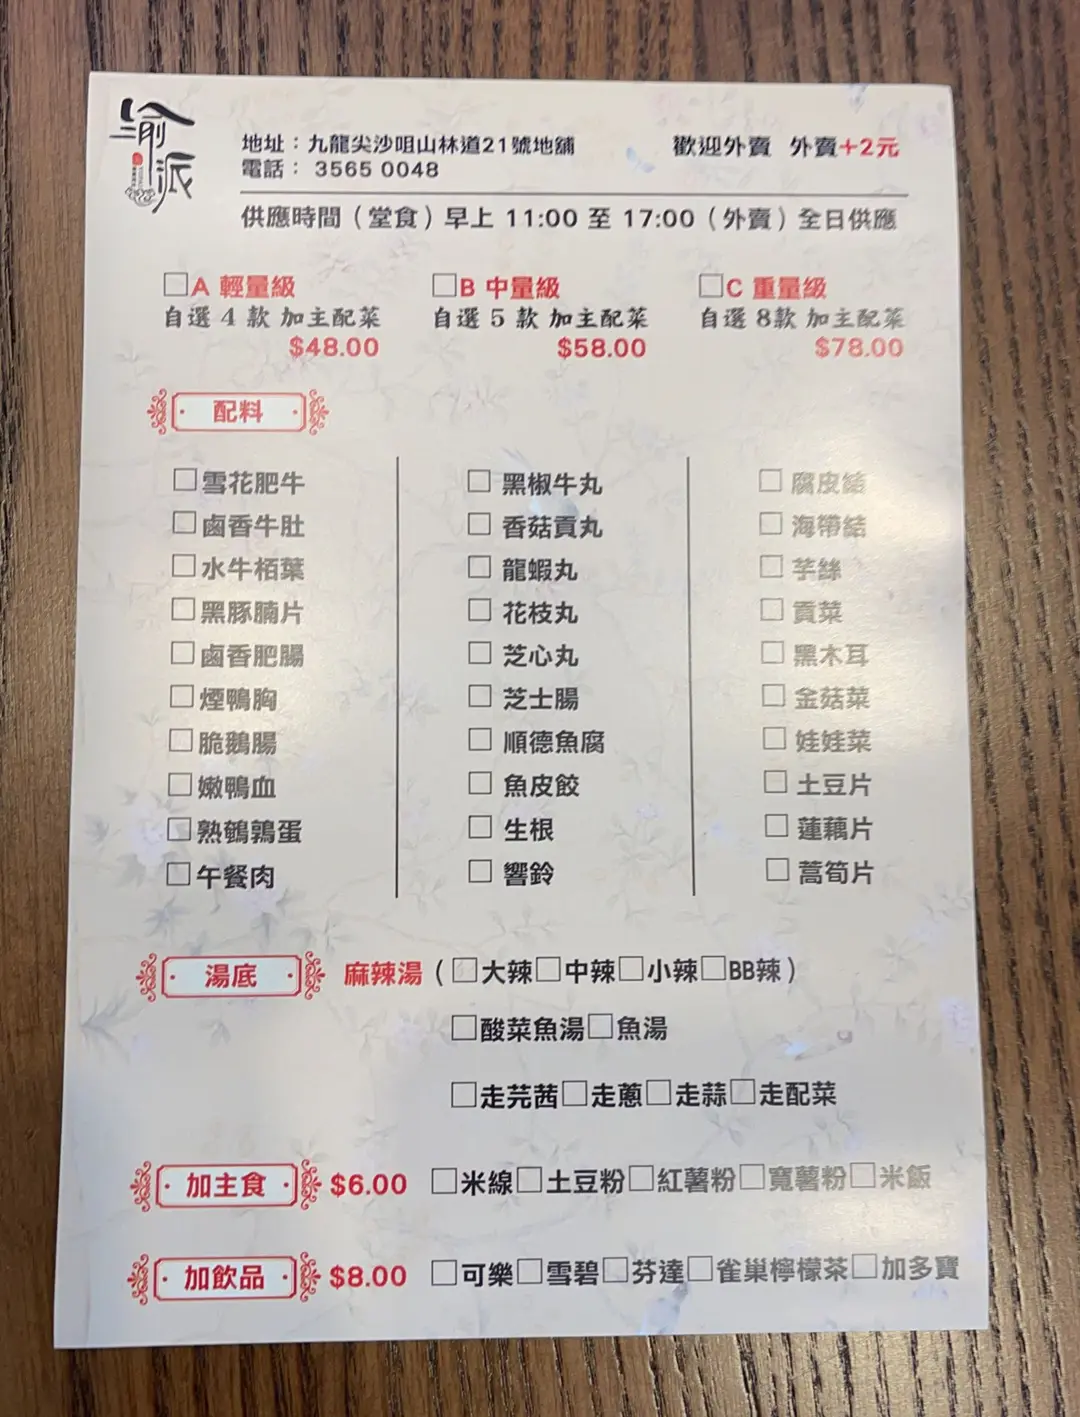 渝派
地址：九龍尖沙咀山林道21號地舖
電話： 3565 0048
歡迎外賣 外賣+2元
供應時間（堂食）早上 11:00 至 17:00（外賣）全日供應
□A 輕量級
自選 4 款 加主配菜
$48.00
□B 中量級
自選 5 款 加主配菜
$58.00
□C 重量級
自選 8款 加主配菜
$78.00
配料
□雪花肥牛
□鹵香牛肚
□水牛栢葉
□黑豚腩片
□鹵香肥腸
□煙鴨胸
□脆鵝腸
□嫩鴨血
□熟鵪鶉蛋
□午餐肉
□ 黑椒牛丸
□ 香菇貢丸
□ 龍蝦丸
□ 花枝丸
□ 芝心丸
□ 芝士腸
□ 順德魚腐
□ 魚皮餃
□ 生根
□ 響鈴
□ 腐皮結
□ 海帶結
□ 芋絲
□ 貢菜
□ 黑木耳
□ 金菇菜
□ 娃娃菜
□ 土豆片
□ 蓮藕片
□ 萵筍片
湯底 麻辣湯（□大辣□中辣□小辣□BB辣）
□酸菜魚湯□魚湯
□走芫茜□走蔥□走蒜□走配菜
加主食 $6.00 □米線□土豆粉□紅薯粉□寬薯粉□米飯
加飲品 $8.00 □可樂□雪碧□芬達□雀巢檸檬茶□加多寶